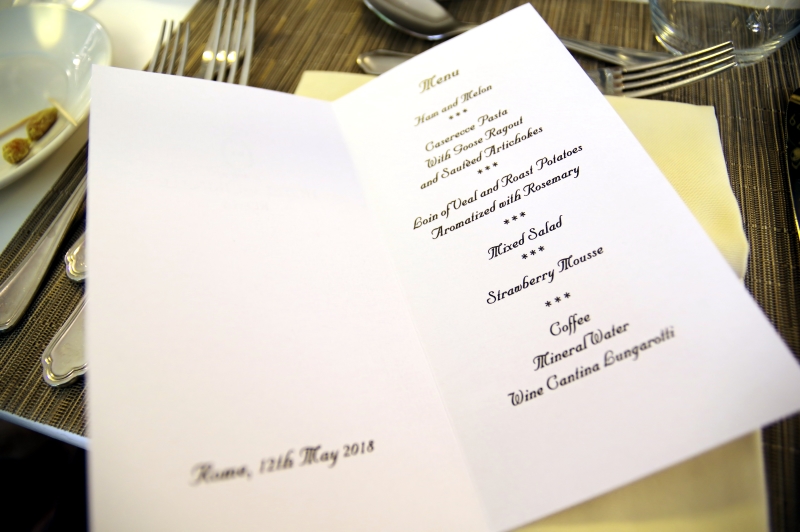 Menu
Ham and Melon
***
Caserecce Pasta
With Goose Ragout
and Sautèed Artichokes
***
Loin of Veal and Roast Potatoes
Aromatized with Rosemary
***
Mixed Salad
***
Strawberry Mousse
***
Coffee
Mineral Water
Wine Cantina Lungarotti
Rome, 12th May 2018